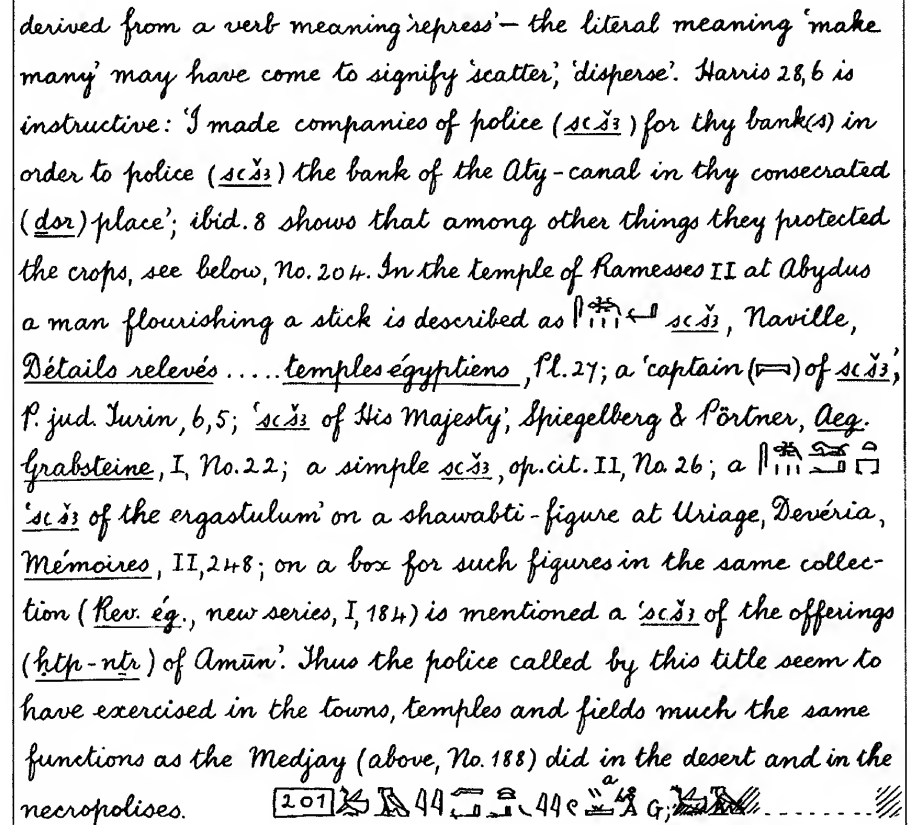 derived from a verb meaning 'repress' – the literal meaning 'make
many' may have come to signify 'scatter', 'disperse'. Harris 28,6 is
instructive: 'I made companies of police (sꜥšꜣ) for thy bank(s) in
order to police (sꜥšꜣ) the bank of the Aty-canal in thy consecrated
(ḏsr) place'; ibid. 8 shows that among other things they protected
the crops, see below, No. 204. In the temple of Ramesses II at Abydus
a man flourishing a stick is described as sꜥšꜣ, Naville,
Détails relevés ..... temples égyptiens, Pl. 27; a 'captain () of sꜥšꜣ',
P. jud. Turin, 6,5; 'sꜥšꜣ of His Majesty', Spiegelberg & Pörtner, Aeg.
Grabsteine, I, No. 22; a simple sꜥšꜣ, op. cit. II, No. 26; a
'sꜥšꜣ of the ergastulum' on a shawabti-figure at Uriage, Devéria,
Mémoires, II, 248; on a box for such figures in the same collec-
tion (Rev. ég., new series, I, 184) is mentioned a 'sꜥšꜣ of the offerings
(ḥtp-nṯr) of Amūn'. Thus the police called by this title seem to
have exercised in the towns, temples and fields much the same
functions as the Medjay (above, No. 188) did in the desert and in the
necropolises. 201 a G;